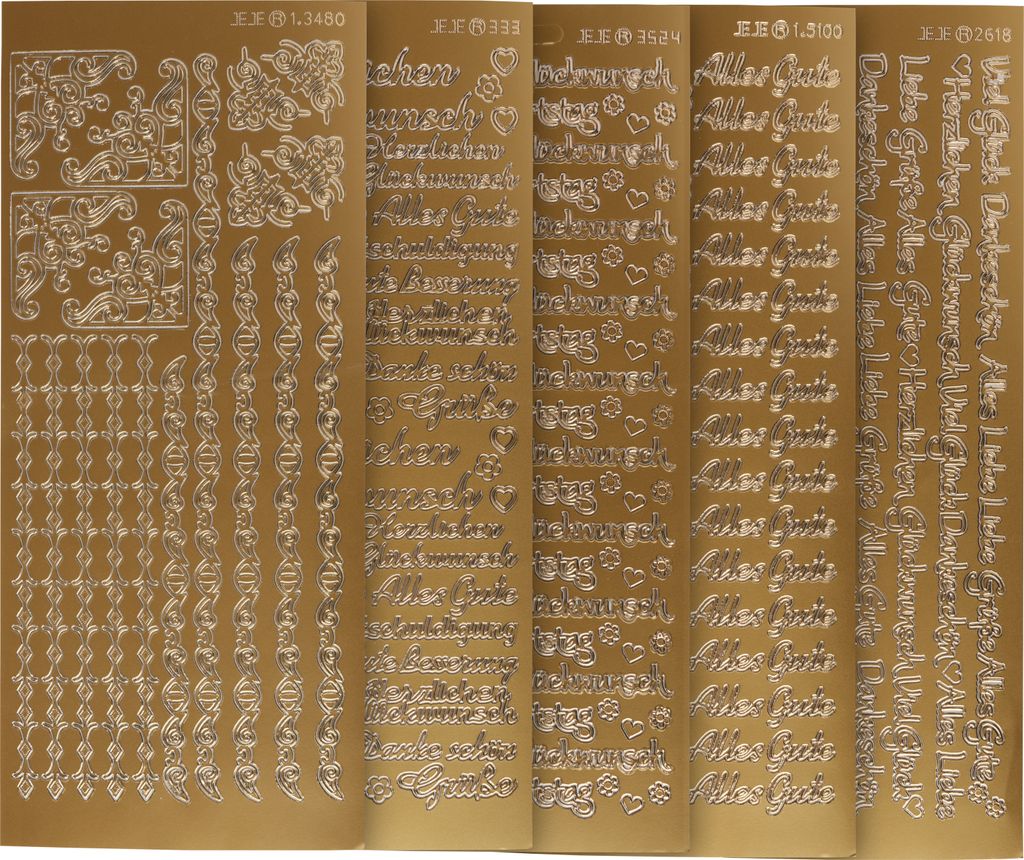 JEJE ® 1.3480
JEJE ® 333
chen
wunsch
Herzlichen
Glückwunsch
Alles Gute
schuldigung
ute Besserung
Herzlichen
lückwunsch
Danke schön
Grüße
chen
wunsch
Herzlichen
Glückwunsch
Alles Gute
schuldigung
ute Besserung
Herzlichen
lückwunsch
Danke schön
Grüße
JEJE ® 3524
lückwunsch
tstag
lückwunsch
tstag
lückwunsch
tstag
lückwunsch
tstag
lückwunsch
tstag
lückwunsch
tstag
lückwunsch
tstag
lückwunsch
tstag
lückwunsch
tstag
lückwunsch
tstag
JEJE ® 1.5100
Alles Gute
Alles Gute
Alles Gute
Alles Gute
Alles Gute
Alles Gute
Alles Gute
Alles Gute
Alles Gute
Alles Gute
Alles Gute
Alles Gute
Alles Gute
Alles Gute
Alles Gute
Alles Gute
Alles Gute
JEJE ® 2618
Viel Glück Dankeschön Alles Liebe Liebe Grüße Alles Gute
Herzlichen Glückwunsch Viel Glück Dankeschön Alles Liebe
Liebe Grüße Alles Gute Herzlichen Glückwunsch Viel Glück
Dankeschön Alles Liebe Liebe Grüße Alles Gute Dankeschön